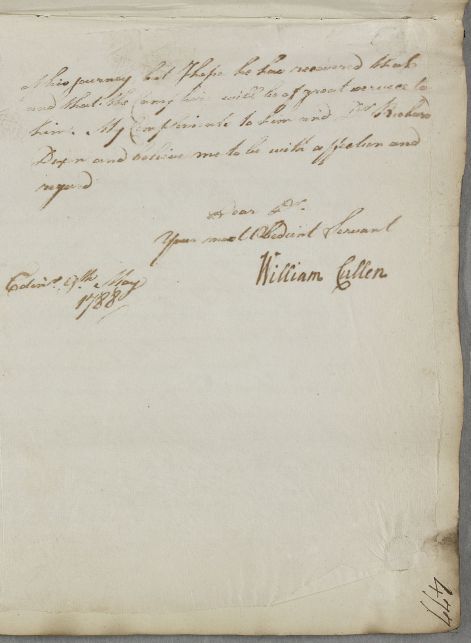 of his journey but I hope he has recovered that
and that the Camp here will be of great service to
him. My Compliments to him and
and believe me to be with affection and
regard
Dear Dr.
Your most Obedient Servant
William Cullen
Edinr. 9th May
1788
447